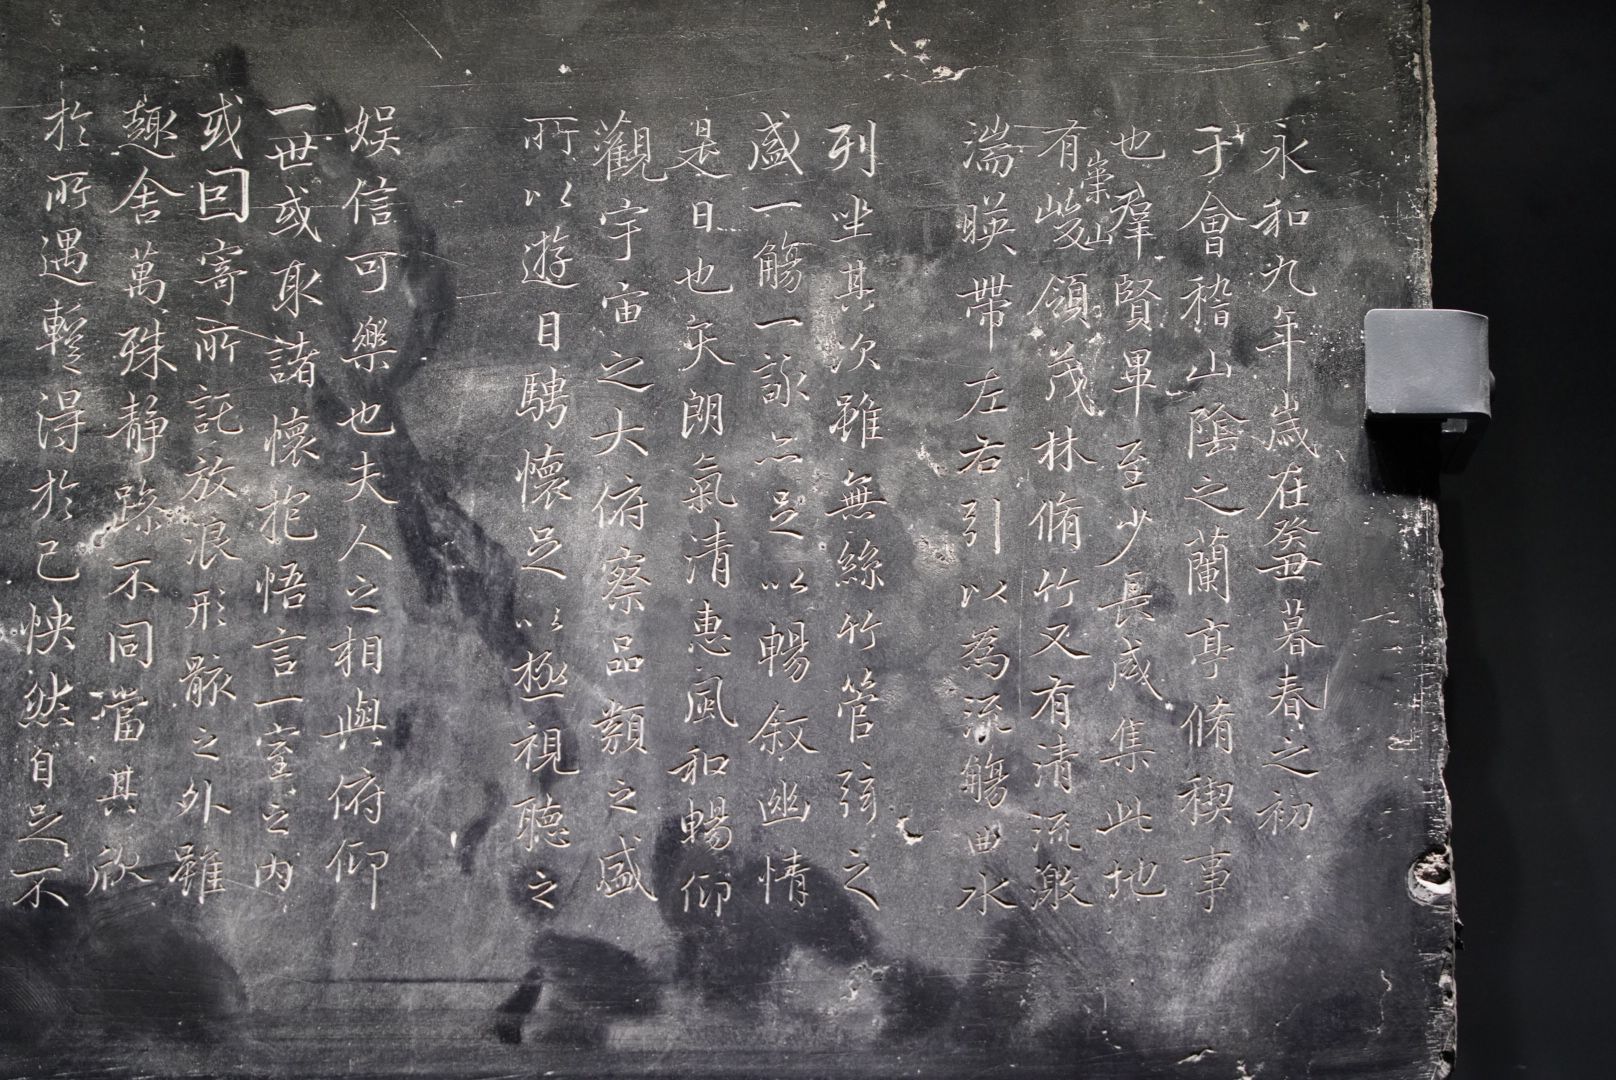 永和九年歲在癸丑暮春之初
于會稽山陰之蘭亭脩稧事
也羣賢畢至少長咸集此地
有崇山峻領茂林脩竹又有清流激
湍暎帶左右引以為流觴曲水
列坐其次雖無絲竹管弦之
盛一觴一詠亦足以暢叙幽情
是日也天朗氣清惠風和暢仰
觀宇宙之大俯察品類之盛
所以遊目騁懷足以極視聽之
娱信可樂也夫人之相與俯仰
一世或取諸懷抱悟言一室之內
或因寄所託放浪形骸之外雖
趣舍萬殊靜躁不同當其欣
於所遇蹔得於己怏然自足不